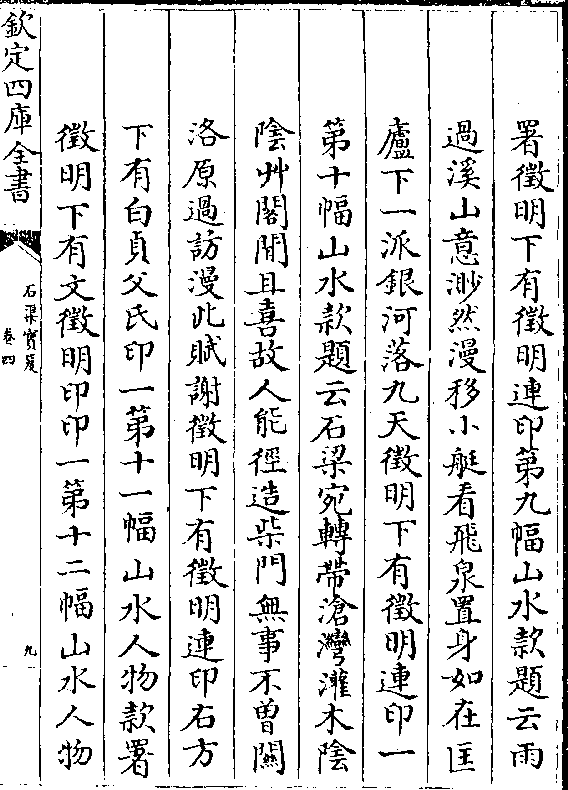 署徵明下有徵明連印第九幅山水款題云雨
過溪山意渺然漫移小艇看飛泉置身如在匡
廬下一派銀河落九天徵明下有徵明連印一
第十幅山水款題云石梁宛轉帶滄灣灌木陰
陰艸閣閒且喜故人能徑造柴門無事不曽關
洛原過訪漫此賦謝徵明下有徵明連印右方
下有白貞父氏印一第十一幅山水人物款署
徵明下有文徵明印印一第十二幅山水人物
欽定四庫全書
石渠寶笈
卷四
九